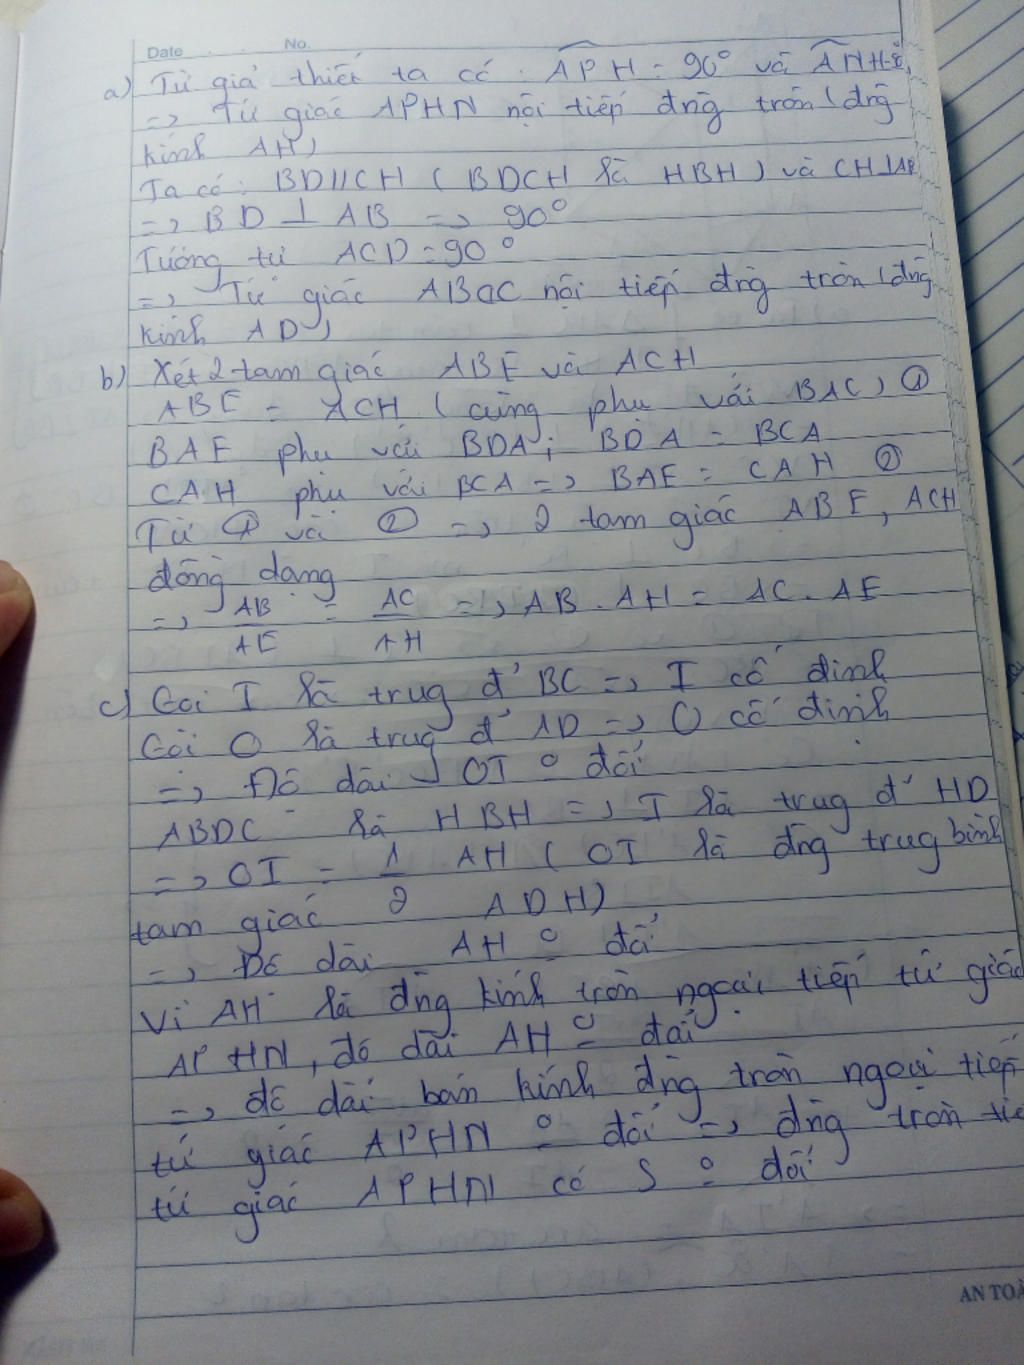 Date No.
a) Từ giả thiết ta có: APH = 90° và ANH = 90°
=> Tứ giác APHN nội tiếp đng tròn (đng
kính AH)
Ta có: BD//CH (BDCH là HBH) và CH⊥AB
=> BD ⊥ AB => 90°
Tương tự ACD = 90°
=> Tứ giác ABDC nội tiếp đng tròn (đng
kính AD)
b) Xét 2 tam giác ABE và ACH
ABE = ACH (cùng phụ vói BAC) ①
BAE phụ vói BDA; BDA = BCA
CAH phụ với BCA => BAE = CAH ②
Từ ① và ② => 2 tam giác ABE, ACH
đồng dạng
=> AB/AE = AC/AH => AB . AH = AC . AE
c) Gọi I là trug đ' BC => I cố định
Gọi O là trug đ' AD => O cố định
=> Độ dài OI o đổi
ABDC là HBH => I là trug đ' HD
=> OI = 1/2 AH (OI là đng trug bình
tam giác ADH)
=> Độ dài AH o đổi
Vì AH là đng kính tròn ngoại tiếp tứ giác
APHN, độ dài AH o đổi
=> độ dài bán kính đng tròn ngoại tiếp
tứ giác APHN o đổi => đng tròn
tứ giác APHN có S o đổi
AN TOÀ